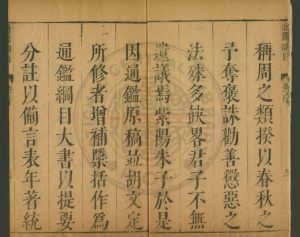 稱周之類揆以春秋之
予奪褒誅勸善懲惡之
法殊多缺畧君子不無
遺議焉紫陽朱子於是
因通鑑原稿並胡文定
所修者增補檃括作爲
通鑑綱目大書以提要
分註以備言表年著統